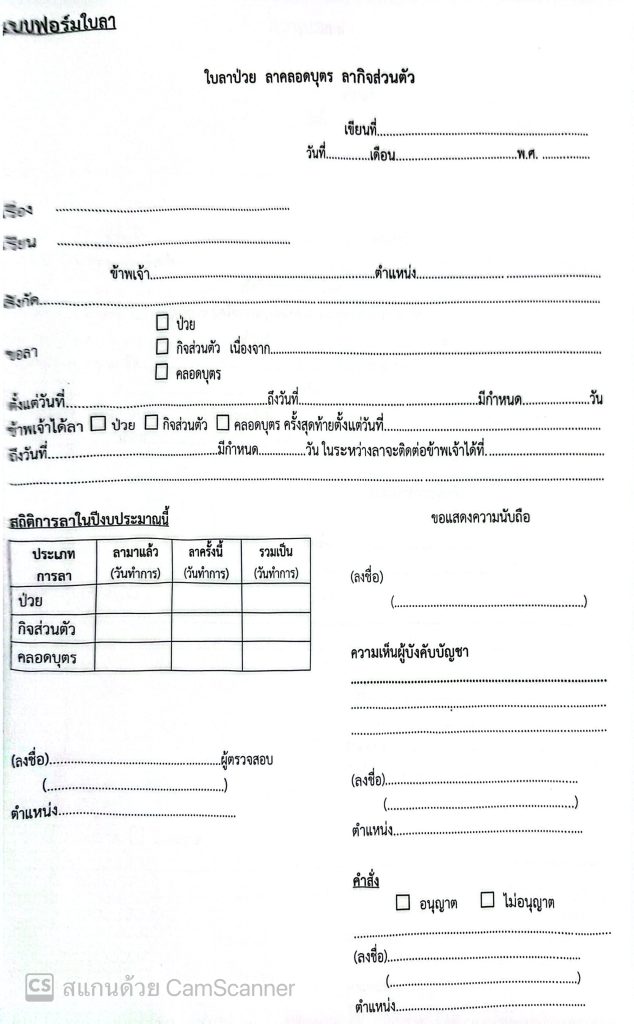 แบบฟอร์มใบลา
ใบลาป่วย ลาคลอดบุตร ลากิจส่วนตัว
เขียนที่............................................................
วันที่..............เดือน....................................พ.ศ. ..............
เรื่อง ....................................................................
เรียน ....................................................................
ข้าพเจ้า................................................................ตำแหน่ง....................................................
สังกัด................................................................................................................................
☐ ป่วย
ขอลา ☐ กิจส่วนตัว เนื่องจาก............................................................................................
☐ คลอดบุตร
ตั้งแต่วันที่........................................................ถึงวันที่..................................................มีกำหนด...................วัน
ข้าพเจ้าได้ลา ☐ ป่วย ☐ กิจส่วนตัว ☐ คลอดบุตร ครั้งสุดท้ายตั้งแต่วันที่............................................................
ถึงวันที่................................................มีกำหนด.............วัน ในระหว่างลาจะติดต่อข้าพเจ้าได้ที่..................................
................................................................................................................................
สถิติการลาในปีงบประมาณนี้
ประเภทการลา ลามาแล้ว (วันทำการ) ลาครั้งนี้ (วันทำการ) รวมเป็น (วันทำการ)
ป่วย
กิจส่วนตัว
คลอดบุตร
(ลงชื่อ)................................................ผู้ตรวจสอบ
(....................................................)
ตำแหน่ง....................................................
ขอแสดงความนับถือ
(ลงชื่อ)
(......................................................)
ความเห็นผู้บังคับบัญชา
........................................................................
........................................................................
........................................................................
(ลงชื่อ)......................................................
(......................................................)
ตำแหน่ง......................................................
คำสั่ง
☐ อนุญาต ☐ ไม่อนุญาต
........................................................................
(ลงชื่อ)......................................................
(......................................................)
ตำแหน่ง......................................................
CS สแกนด้วย CamScanner